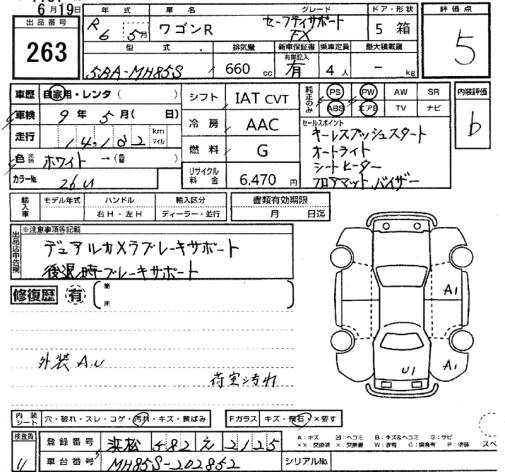 6月19日
出品番号
263
年式
R 6年 5月
車名
ワゴンR
グレード
セーフティサポート
FX
ドア・形状
5 箱
評価点
5
型式
5BA-MH85S
排気量
660 cc
新車保証書
有 有無記入
乗車定員
4 人
最大積載量
- kg
車歴 自家用・レンタ( )
車検 9年 5月( 日)
走行 14,102 km マイル
色 ホワイト →( )
カラーNo. 26U
シフト IAT CVT
冷房 AAC
燃料 G
リサイクル料金 6.470 円
純正のみ
PS PW AW SR
ABS エアB TV ナビ
セールスポイント
キーレスプッシュスタート
オートライト
シートヒーター
フロアマット バイザー
内装評価
b
輸入車
モデル年式 ハンドル 輸入区分
右H・左H ディーラー・並行
書類有効期限
月 日迄
出品店申告欄
※注意事項等記載
デュアルカメラブレーキサポート
後退時ブレーキサポート
修復歴 有 箇所
外装 A.U
荷室汚れ
A1
A1
U1
内装シート 穴・破れ・スレ・コゲ・汚れ・キズ・黄ばみ
Fガラス キズ・飛石・×要す
検査員
登録番号 浜松 482 え 2125
車台番号 MH85S-202852
シリアルNo.